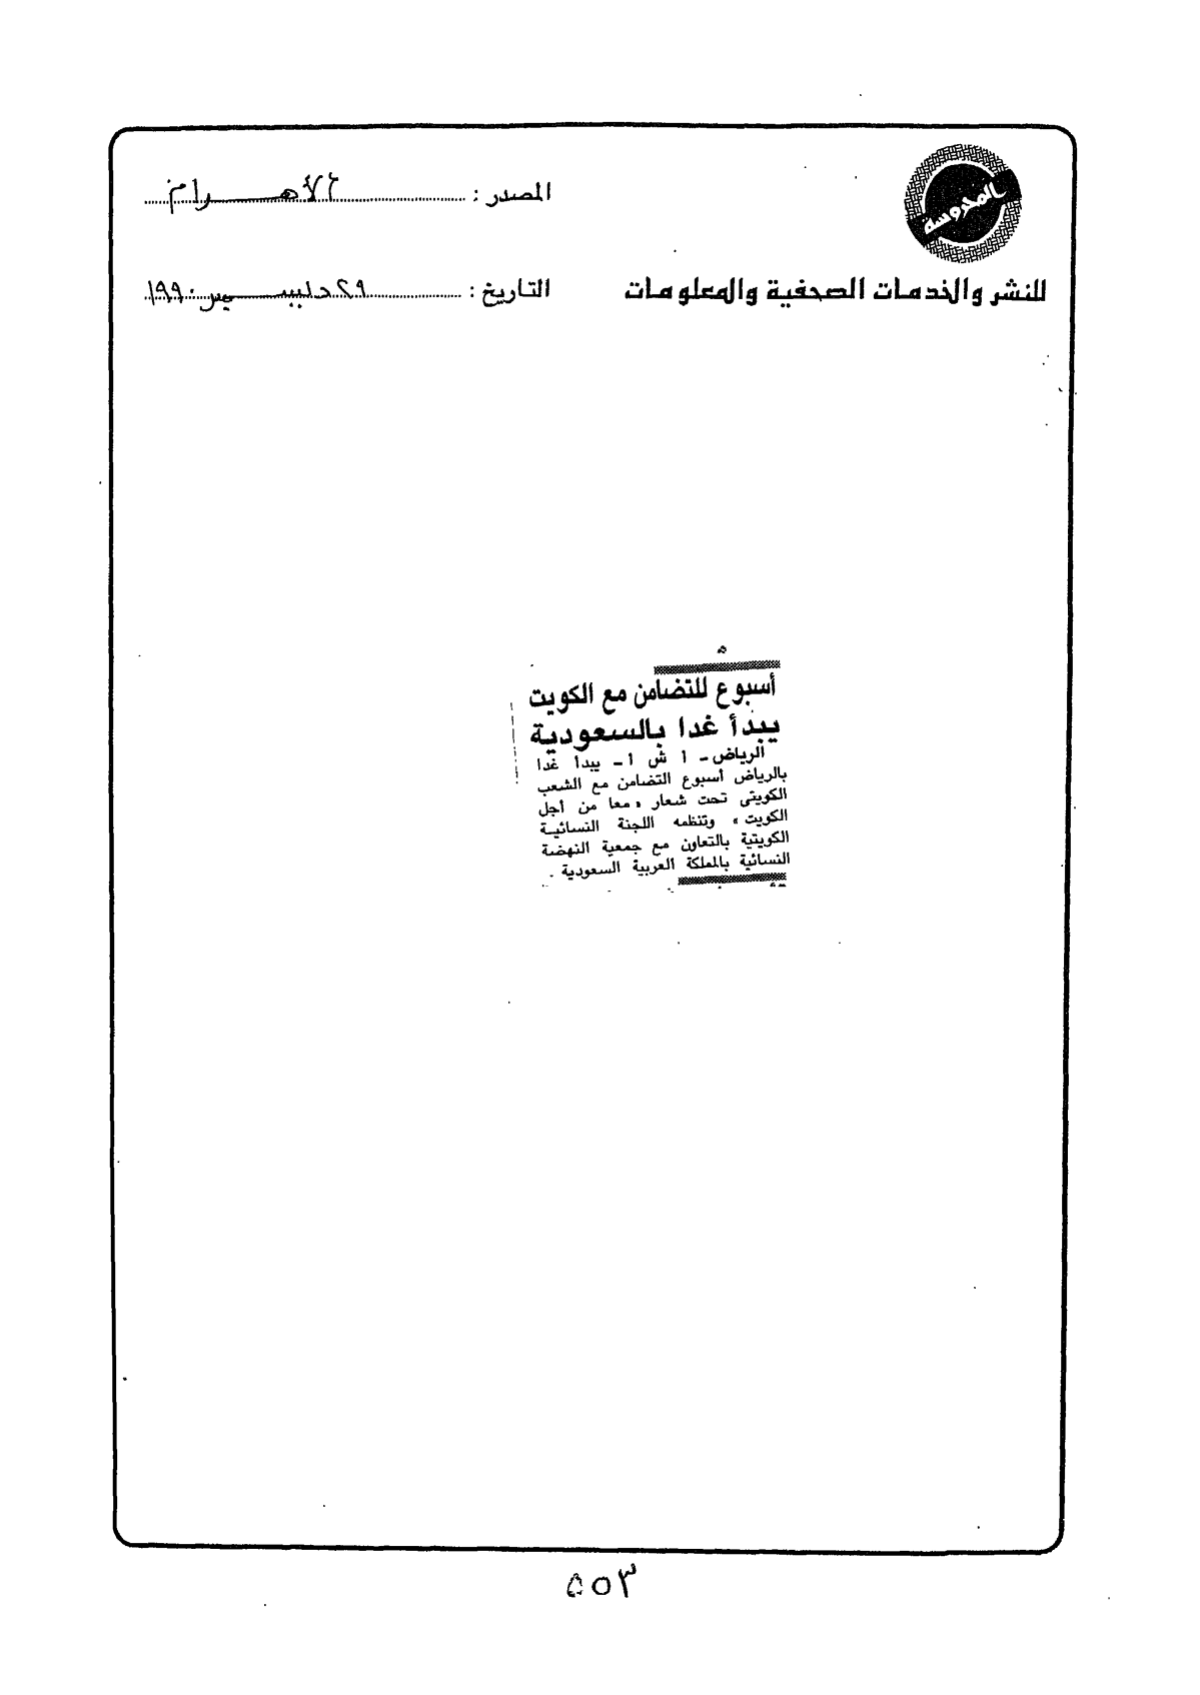 المحروسة
المصدر : الأهرام
للنشر والخدمات الصحفية والمعلومات
التاريخ : ٢٩ ديسمبر ١٩٩٠
أسبوع للتضامن مع الكويت
يبدأ غدا بالسعودية
الرياض - أ ش أ - يبدأ غدا
بالرياض أسبوع التضامن مع الشعب
الكويتى تحت شعار « معا من أجل
الكويت » وتنظمه اللجنة النسائية
الكويتية بالتعاون مع جمعية النهضة
النسائية بالمملكة العربية السعودية .
٥٥٣